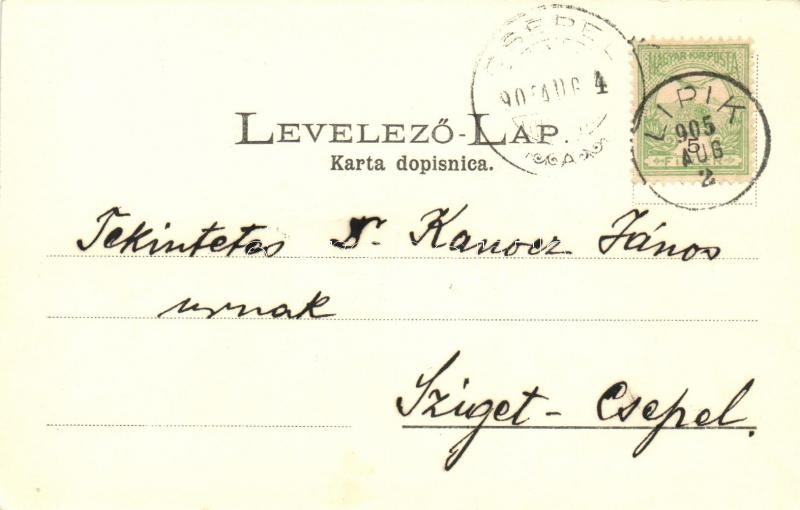 CSEPEL
905 AUG 4
A
MAGYAR KIR. POSTA
5
FILLÉR
LIPIK
905
AUG
2
LEVELEZŐ-LAP.
Karta dopisnica.
Tekintetes Dr. Kanocz János
urnak
Sziget-Csepel.